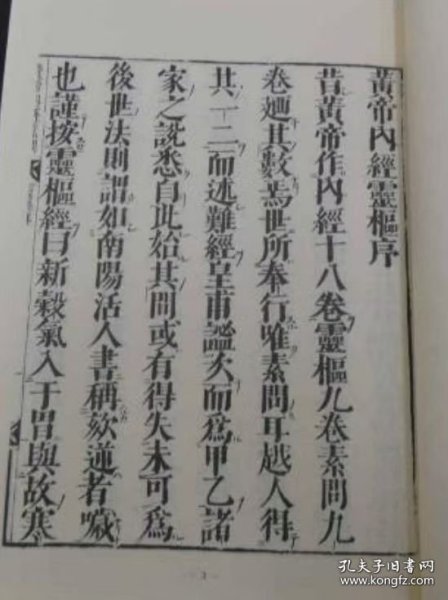 黃帝內經靈樞序
昔黃帝作內經十八卷靈樞九卷素問九
卷廼其數焉世所奉行唯素問耳越人得
其一二而述難經皇甫謐次而爲甲乙諸
家之說悉自此始其間或有得失未可爲
後世法則謂如南陽活人書稱欬逆者噦
也謹按靈樞經曰新穀氣入于胃與故寒
3
孔夫子旧书网
www.kongfz.com